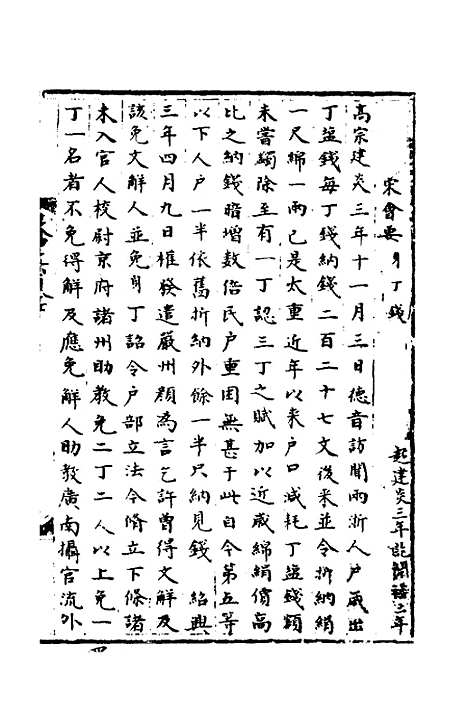 宋會要 身丁錢
起建炎三年訖開禧二年
高宗建炎三年十一月三日德音訪聞兩浙人户歲出
丁塩錢每丁錢納錢二百二十七文後来並令折納絹
一尺綿一兩已是太重近年以来户口减耗丁塩錢額
未嘗蠲除至有一丁認三丁之賦加以近歲綿絹價高
比之納錢暗增數倍民户重困無甚于此自今第五等
以下人户一半依舊折納外餘一半只納見錢 紹興
三年四月九日權發遣嚴州顏為言乞許曽得文解及
該免文解人並免身丁詔令户部立法今脩立下條諸
未入官人校尉京府諸州助教免二丁二人以上免一
丁一名者不免得解及應免解人助教廣南攝官流外